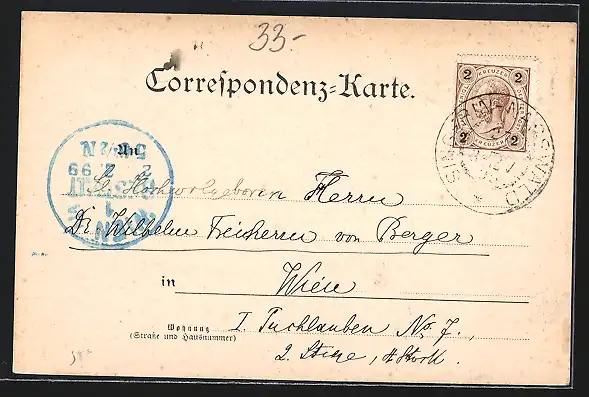 33.-
Correspondenz-Karte.
2 KREUZER 2
2 KREUZER 2
An
Sr. Hochwolgeboren Herrn
Dr Wilhelm Freiherrn von Berger
in Wien
Wohnung
(Straße und Hausnummer)
I. Tuchlauben No. 7,
2. Stiege, 4. Stock.
WIEN
BESTELLT
99